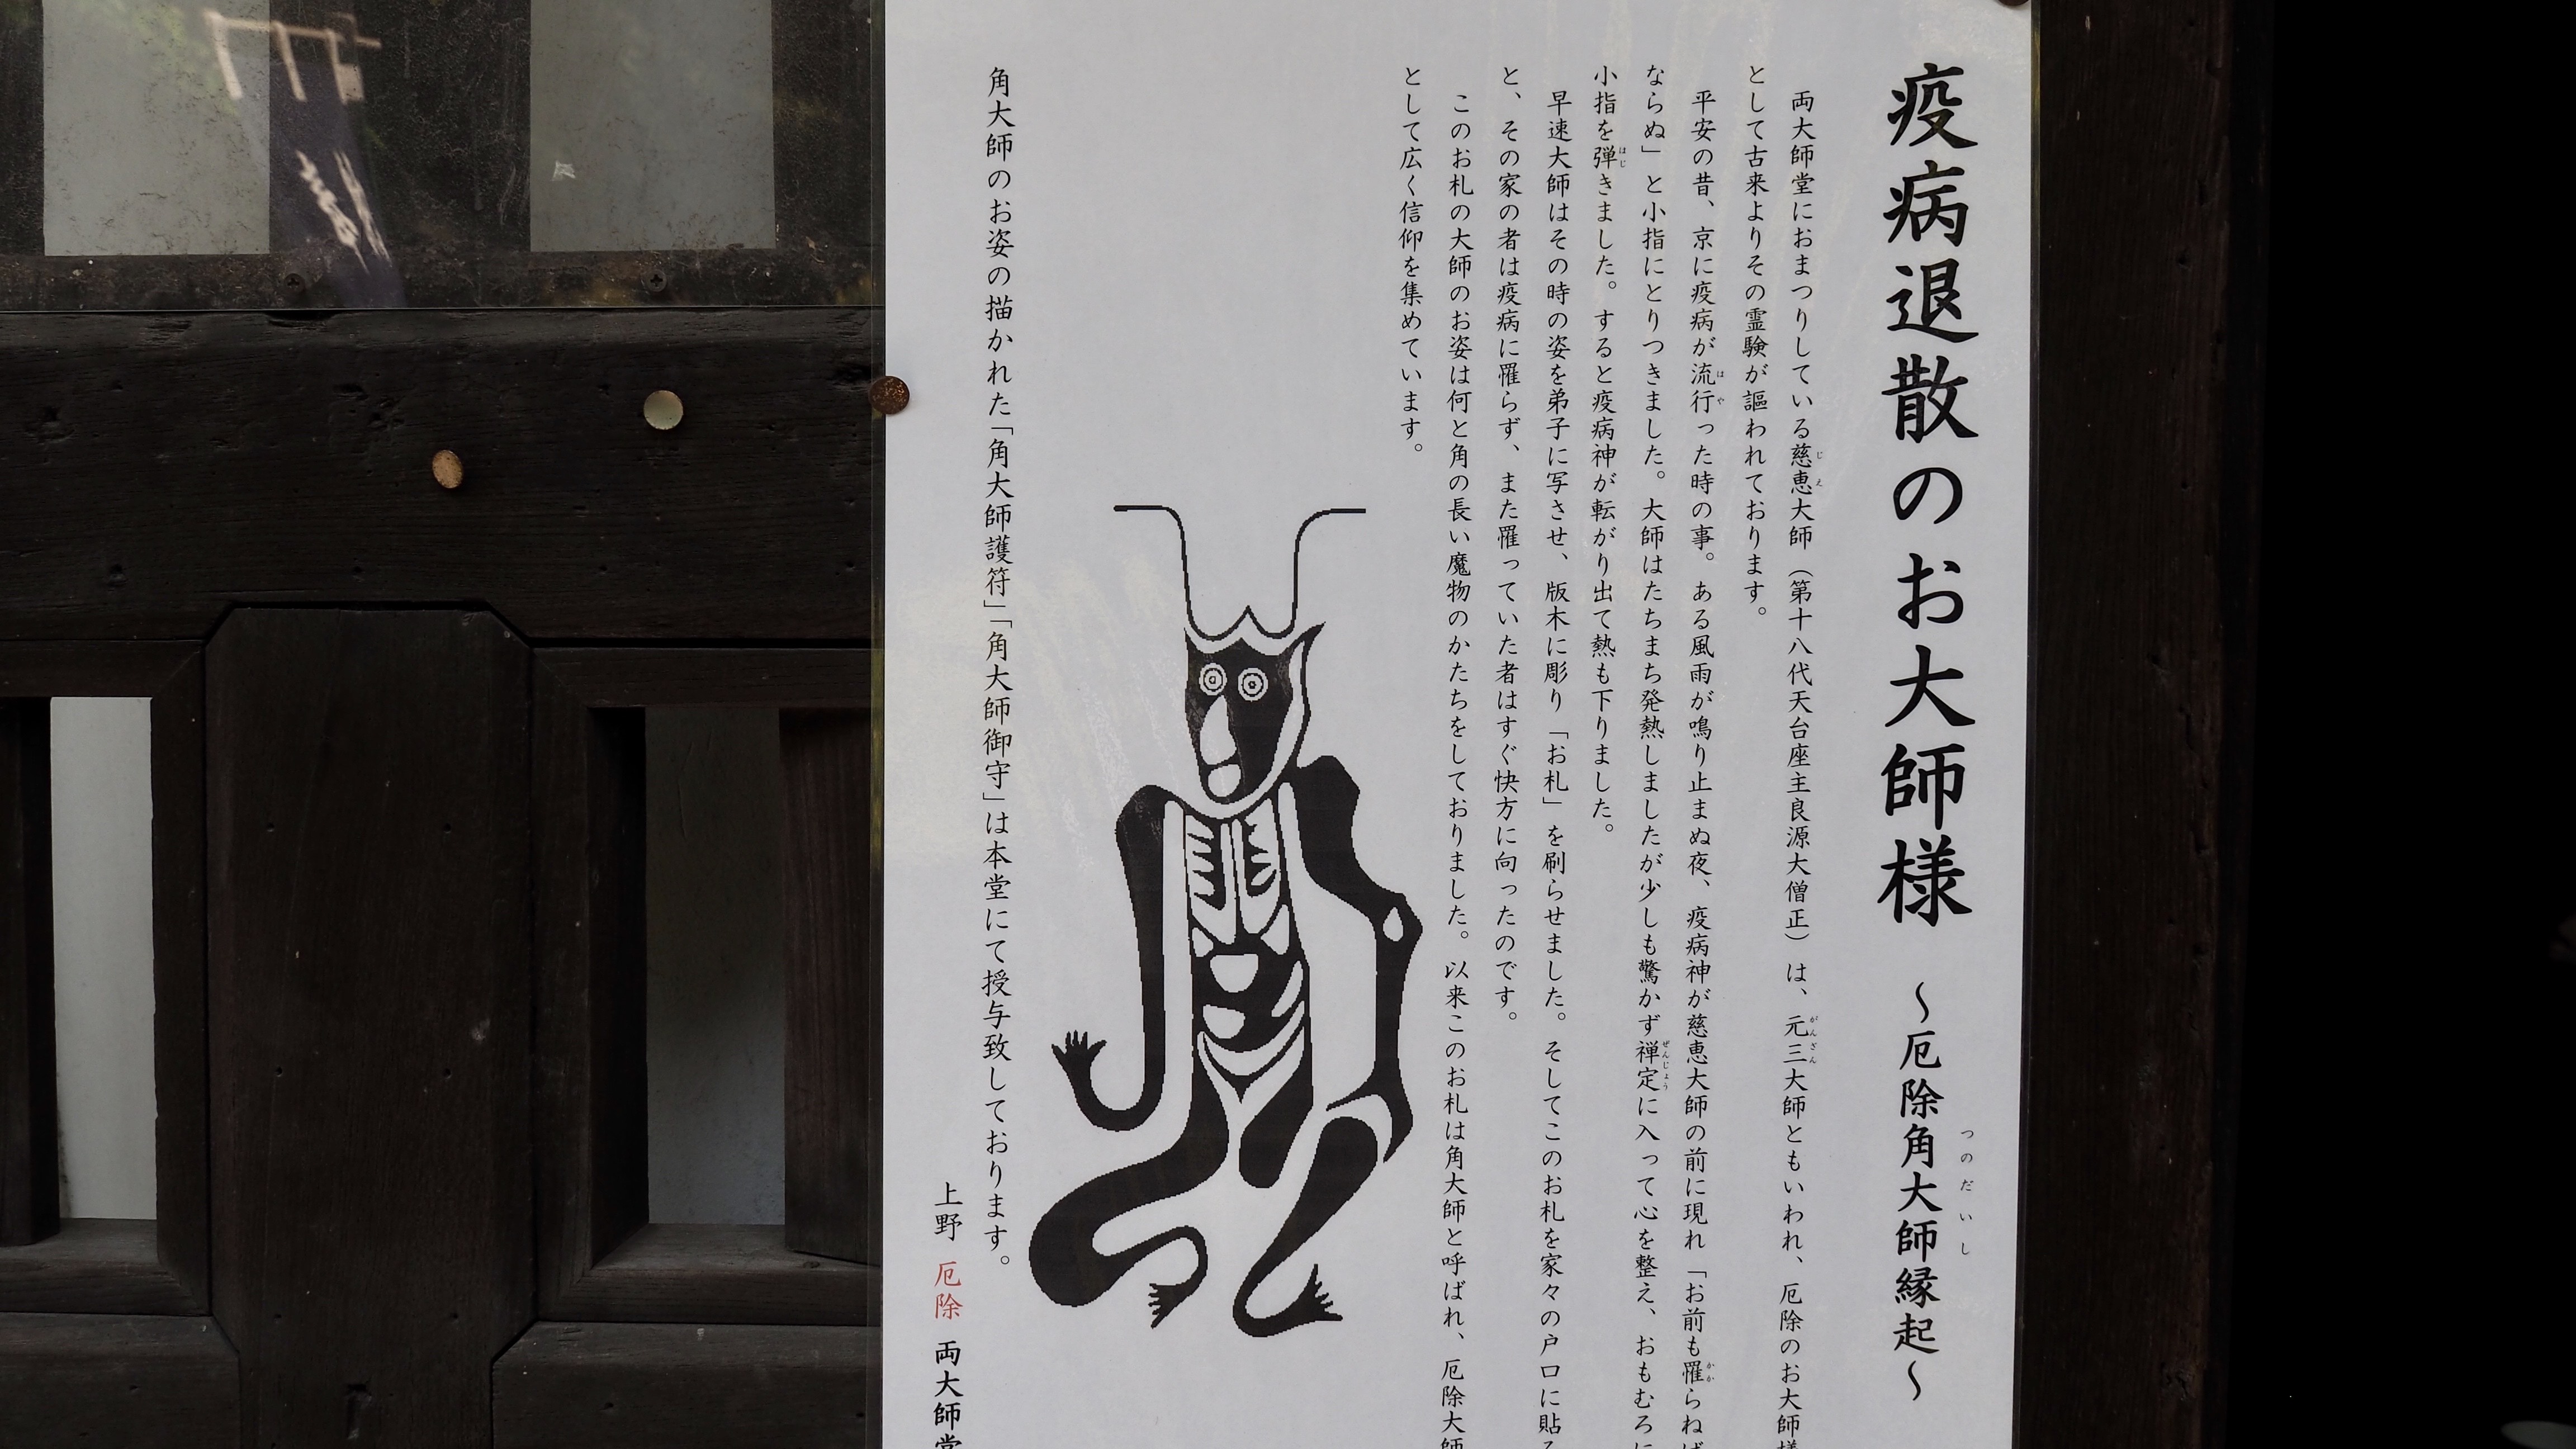 疫病退散のお大師様 ～厄除角大師縁起～
つのだいし
両大師堂におまつりしている慈恵大師（第十八代天台座主良源大僧正）は、元三大師ともいわれ、厄除のお大師様
じえ
がんざん
として古来よりその霊験が謳われております。
平安の昔、京に疫病が流行った時の事。ある風雨が鳴り止まぬ夜、疫病神が慈恵大師の前に現れ「お前も罹らねば
はや
かか
ならぬ」と小指にとりつきました。大師はたちまち発熱しましたが少しも驚かず禅定に入って心を整え、おもむろに
ぜんじょう
小指を弾きました。すると疫病神が転がり出て熱も下りました。
はじ
早速大師はその時の姿を弟子に写させ、版木に彫り「お札」を刷らせました。そしてこのお札を家々の戸口に貼る
と、その家の者は疫病に罹らず、また罹っていた者はすぐ快方に向ったのです。
このお札の大師のお姿は何と角の長い魔物のかたちをしておりました。以来このお札は角大師と呼ばれ、厄除大師
として広く信仰を集めています。
角大師のお姿の描かれた「角大師護符」「角大師御守」は本堂にて授与致しております。
上野 厄除 両大師堂